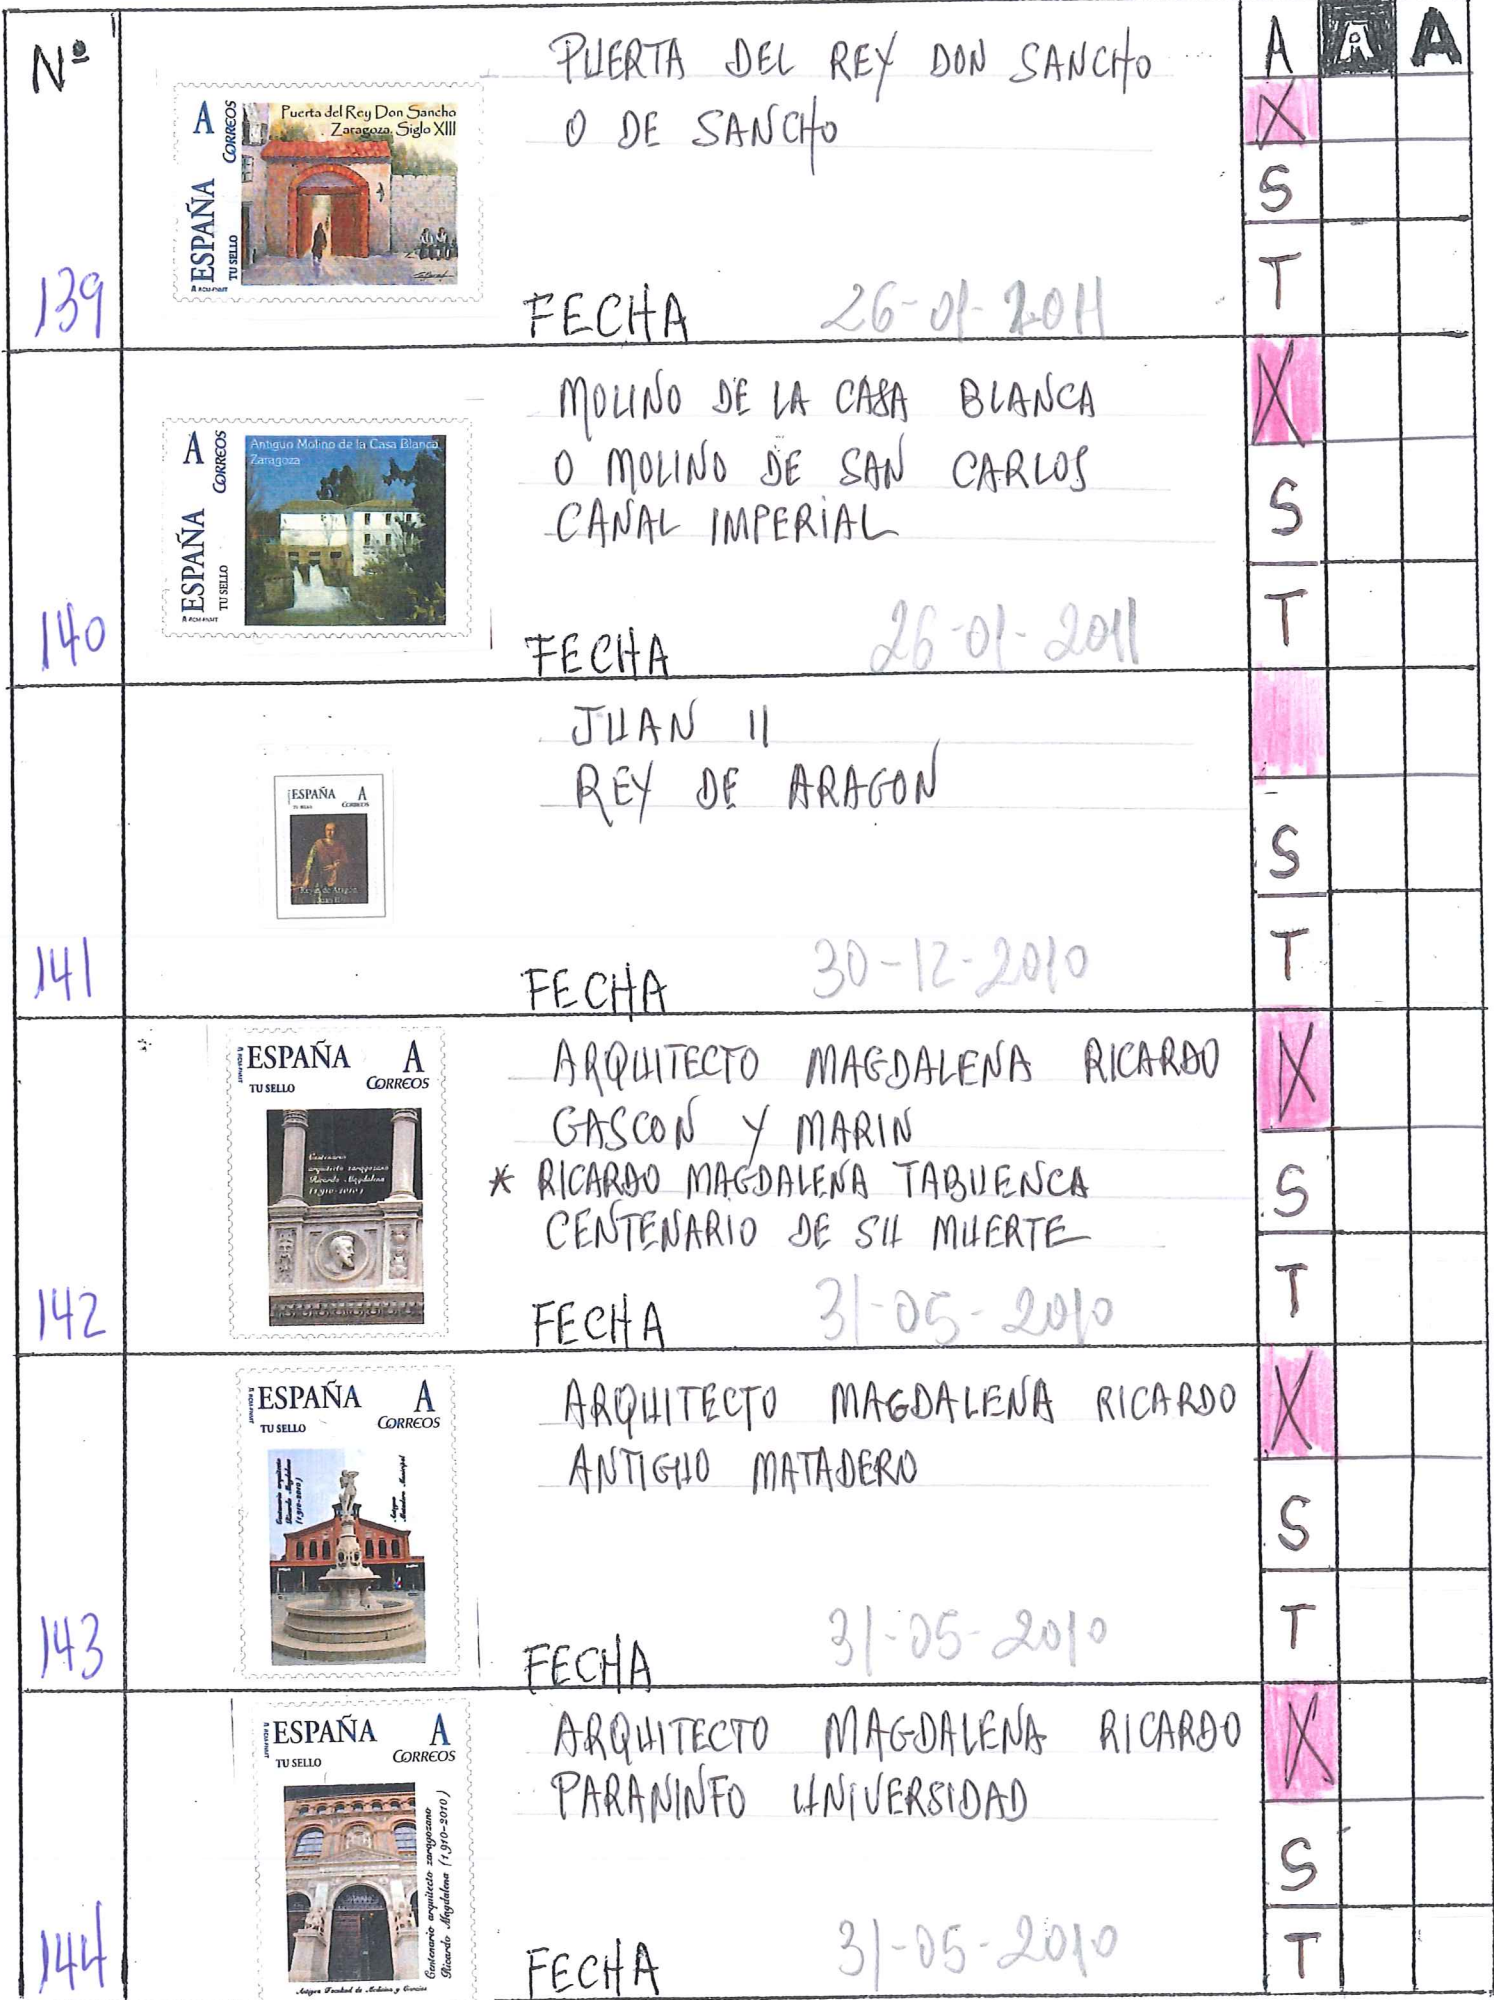 Nº
A A A
A CORREOS
ESPAÑA
TU SELLO
Puerta del Rey Don Sancho
Zaragoza. Siglo XIII
PUERTA DEL REY DON SANCHO
O DE SANCHO
X
S
T
139
FECHA 26-01-2011
A CORREOS
ESPAÑA
TU SELLO
Antiguo Molino de la Casa Blanca
Zaragoza
MOLINO DE LA CASA BLANCA
O MOLINO DE SAN CARLOS
CANAL IMPERIAL
X
S
T
140
FECHA 26-01-2011
ESPAÑA A
CORREOS
Reyes de Aragón
Juan II
JUAN II
REY DE ARAGON
S
T
141
FECHA 30-12-2010
ESPAÑA A
TU SELLO CORREOS
Centenario
arquitecto zaragozano
Ricardo Magdalena
(1910-2010)
ARQUITECTO MAGDALENA RICARDO
GASCON Y MARIN
* RICARDO MAGDALENA TABUENCA
CENTENARIO DE SU MUERTE
X
S
T
142
FECHA 31-05-2010
ESPAÑA A
TU SELLO CORREOS
Centenario arquitecto
Ricardo Magdalena
(1.910-2010)
Antiguo
Matadero Municipal
ARQUITECTO MAGDALENA RICARDO
ANTIGUO MATADERO
X
S
T
143
FECHA 31-05-2010
ESPAÑA A
TU SELLO CORREOS
Centenario arquitecto zaragozano
Ricardo Magdalena (1.910-2010)
Antigua Facultad de Medicina y Ciencias
ARQUITECTO MAGDALENA RICARDO
PARANINFO UNIVERSIDAD
X
S
T
144
FECHA 31-05-2010